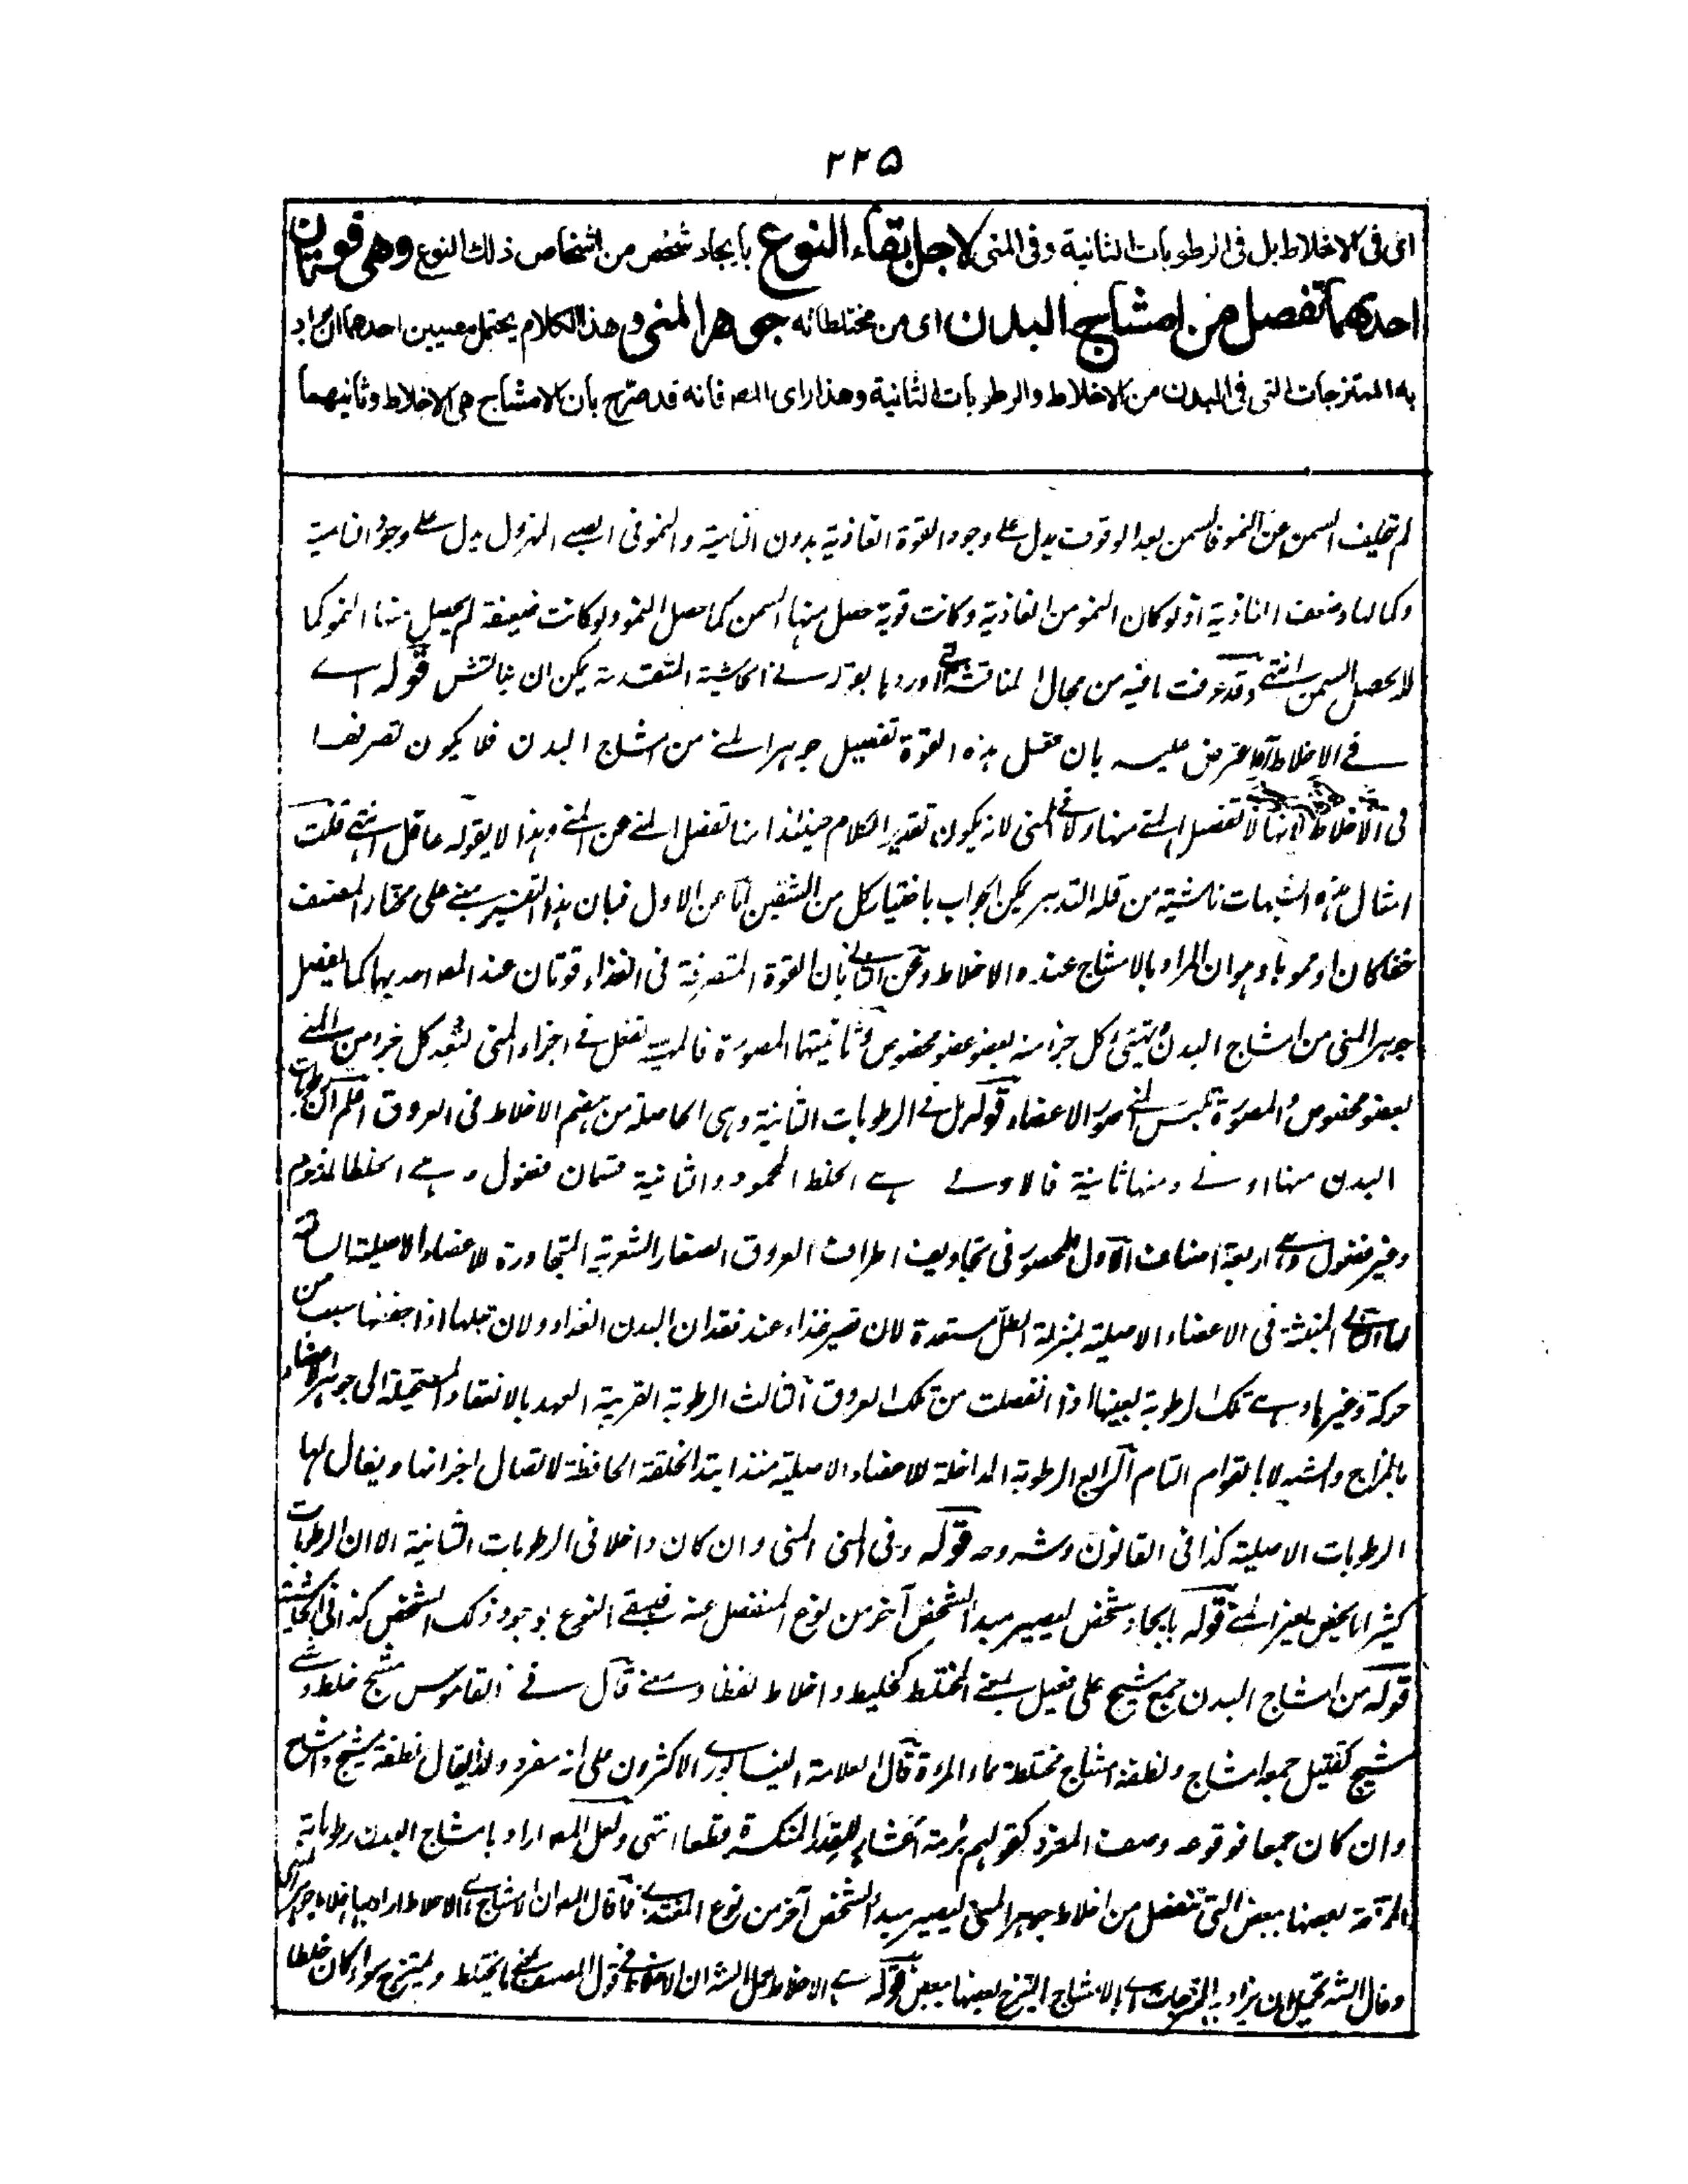 ٢٢۵
اى فى الاخلاط بل فى الرطوبات الثانية وفى المنى لاجل بقاء النوع بايجاد شخص من اشخاص ذلك النوع وهى قوتان
احدهما تفصل من امشاج البدن اى من مختلطاته جوهر المنى وهذا الكلام يحتمل معنيين احدهما ان يراد
به الممتزجات التى فى البدن من الاخلاط والرطوبات الثانية وهذا راى المصـ فانه قد صرّح بأن الامشاج هى الاخلاط وثانيهما
لم تخلف السمن عن النمو فالسمن بعد الوقوف يدل على وجود القوة الغاذية بدون النامية والنمو فى الصبى المهزول يدل على وجود النامية
وكمالها وضعف الغاذية اذ لو كان النمو من الغاذية وكانت قوية حصل منها السمن كما حصل النمو ولو كانت ضعيفة لم يحصل منها النمو كما
لا يحصل السمن انتهى وقد عرفت ما فيه من مجال المناقشة اوردها بقوله فى الحاشية المتقدمة يمكن ان يناقش قوله اى
فى الاخلاط آه اعترض عليه بان فعل هذه القوة تفصيل جوهر المنى من امشاج البدن فلا يكون تصرفها
فى الاخلاط لانها لا تفصل المنى منها ولا فى المنى لانه يكون تقدير الكلام حينئذ انها تفصل المنى من المنى وهذا لا يقوله عاقل انتهى قلت
امثال هذه الشبهات ناشئة من قلة التدبر يمكن الجواب باختيار كل من الشقين اما عن الاول فبان هذا التفسير مبنى على مختار المصنف
خفا كان او صوابا وهو ان المراد بالامشاج عنده الاخلاط وعن الثانى بان القوة المتصرفة فى الغذاء قوتان عند المصـ احديهما كما يفصل
جوهر المنى من امشاج البدن يهيئ كل جزء منه لعضو عضو مخصوص وثانيتها المصورة فالمنى تفعل فى اجزاء المنى لتعد كل جزء من المنى
لعضو مخصوص والمصورة تلبس المنى صور الاعضاء قوله بل فى الرطوبات الثانية وهى الحاصلة من هضم الاخلاط فى العروق اعلم ان رطوبات
البدن منها اولى ومنها ثانية فالاولى هى الخلط المحمود والثانية قسمان فضول وهى الخلط المذموم
وغير فضول وهى اربعة اصناف الاول المحصور فى تجاويف اطراف العروق الصغار الشعرية المجاورة للاعضاء الاصلية الساقية
لها الثانى المنبثة فى الاعضاء الاصلية بمنزلة الطل مستعدة لان تصير غذاء عند فقدان البدن الغذاء ولان تبلها اذا جففها سبب من
حركة وغيرها وهى تلك الرطوبة بعينها اذا انفصلت من تلك العروق الثالث الرطوبة القريبة العهد بالانعقاد المستحيلة الى جوهر الاعضاء
بالمزاج والشبه لا بالقوام التام الرابع الرطوبة الداخلة للاعضاء الاصلية منذ ابتداء الخلقة الحافظة لاتصال اجزائها ويقال لها
الرطوبات الاصلية كذا فى القانون وشروحه قوله وفى المنى المنى وان كان داخلا فى الرطوبات الثانية الا ان الرطوبات
كثيرا ما يخص بغير المنى قوله بايجاد شخص ليصير مبدأ لشخص آخر من نوع المنفصل عنه فيبقى النوع بوجود ذلك الشخص كذا فى الحاشية
قوله من امشاج البدن جمع مشيج على فعيل بمعنى المختلط كخليط واخلاط لفظا ومعنى قال فى القاموس مشج خلط وشئ
مشيج كقتيل جمعه امشاج ونطفة امشاج مختلطة بماء المرأة قال العلامة النيسابورى الاكثرون على انه مفرد ولذا يقال نطفة مشيج وامشاج
وان كان جمعا فوقوعه وصف المفرد كقولهم برمة اعشار للقدر المنكسرة قطعا انتهى ولعل المصـ اراد بامشاج البدن رطوباته
الممتزجة بعضها ببعض التى تفصل من اخلاط جوهر المنى ليصير مبدأ لشخص آخر من نوع المغتذى قال المصـ ان الامشاج هى الاخلاط
وقال الشـ يحتمل ان يراد به الممتزجات اى بالامشاج الممتزج بعضها ببعض قوله هى الاخلاط قال الشـ ان الامشاج فى قول المصنف بمعنى ما يختلط ويمتزج سواء كان خلطا